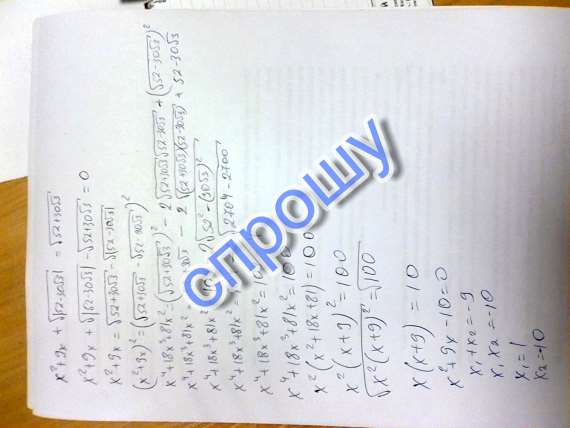 x² + 9x + √|52-30√3| = √52+30√3
x² + 9x + √|52-30√3| - √52+30√3 = 0
x² + 9x = √52+30√3 - √|52-30√3|
(x² + 9x)² = (√52+30√3 - √52-30√3)²
x⁴ + 18x³ + 81x² = (√52+30√3)² - 2√52+30√3 √52-30√3 + (√52-30√3)²
- 2√(52+30√3)(52-30√3) + 52-30√3
x⁴ + 18x³ + 81x²
√52² - (30√3)²
x⁴ + 18x³ + 81x²
√2704-2700
x⁴ + 18x³ + 81x² =
x⁴ + 18x³ + 81x² = 100
x²(x² + 18x + 81) = 100
x²(x+9)² = 100
√x²(x+9)² = √100
x(x+9) = 10
x² + 9x - 10 = 0
x₁ + x₂ = -9
x₁ x₂ = -10
x₁ = 1
x₂ = -10
спрошу